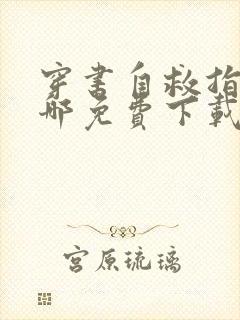 穿书自救指
哪免费下载
宫原琉璃